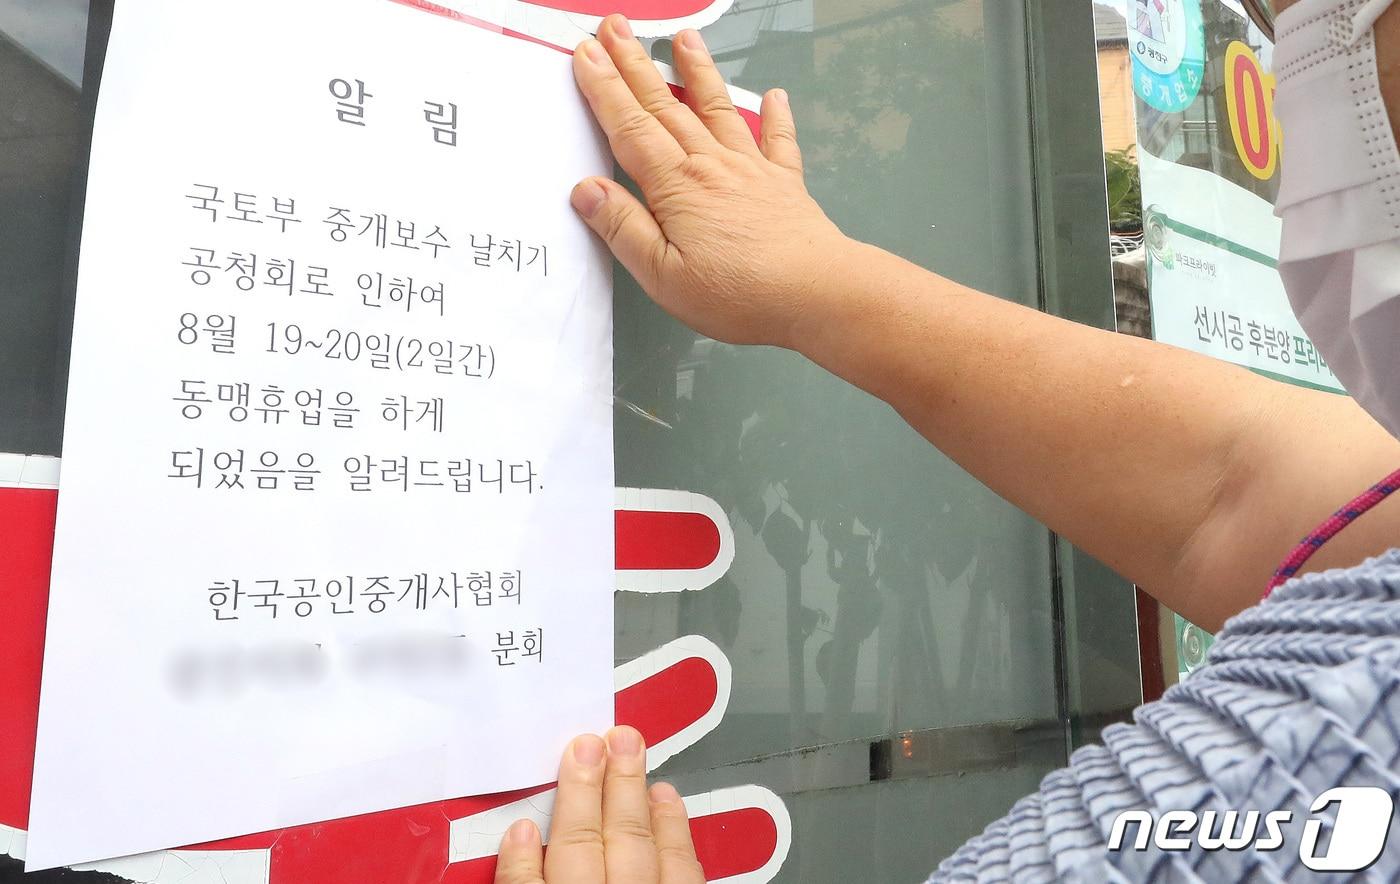 알 림
국토부 중개보수 날치기
공청회로 인하여
8월 19~20일(2일간)
동맹휴업을 하게
되었음을 알려드립니다.
한국공인중개사협회
분회
광진구
중개업소
파크프라이빗
선시공 후분양 프리
news1